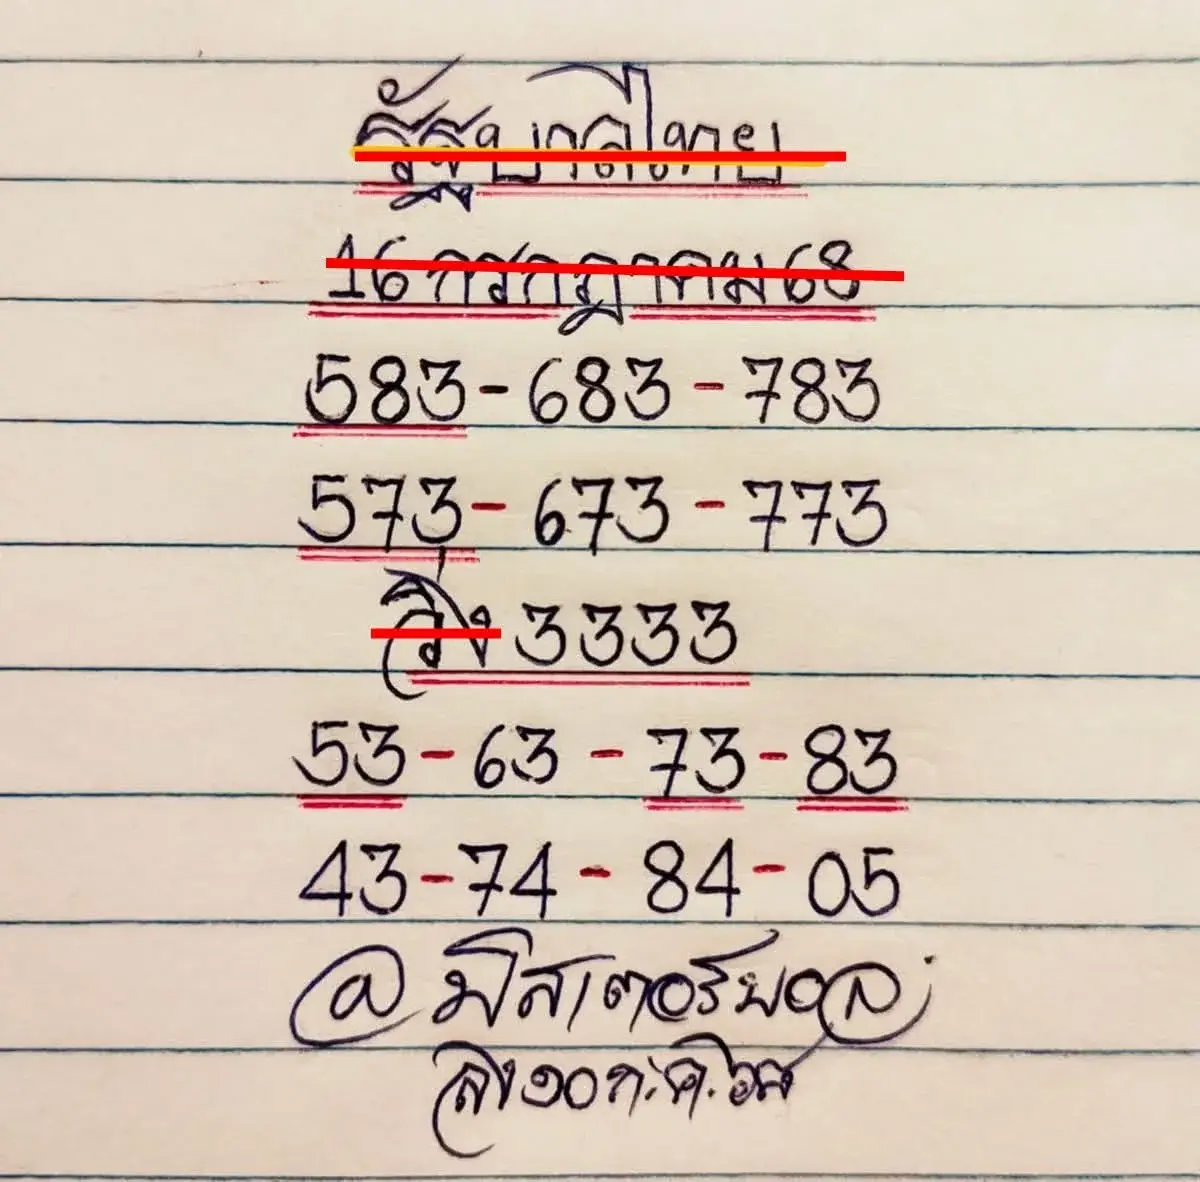 รัฐบาลไทย
16 กรกฎาคม 68
583 - 683 - 783
573 - 673 - 773
วิ่ง 3333
53 - 63 - 73 - 83
43 - 74 - 84 - 05
@มิสเตอร์บอล